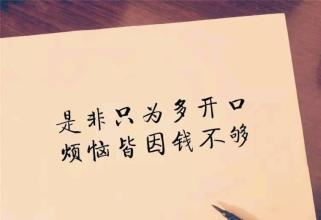 是非只为多开口
烦恼皆因钱不够